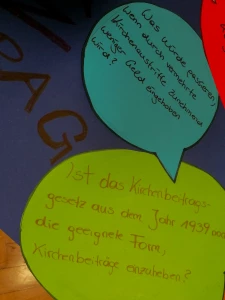 RAG
Was würde passieren,
wenn durch vermehrte
Kirchenaustritte zunehmend
weniger Geld eingehoben
wird?
Ist das Kirchenbeitrags-
gesetz aus dem Jahr 1939 noch
die geeignete Form,
Kirchenbeiträge einzuheben?